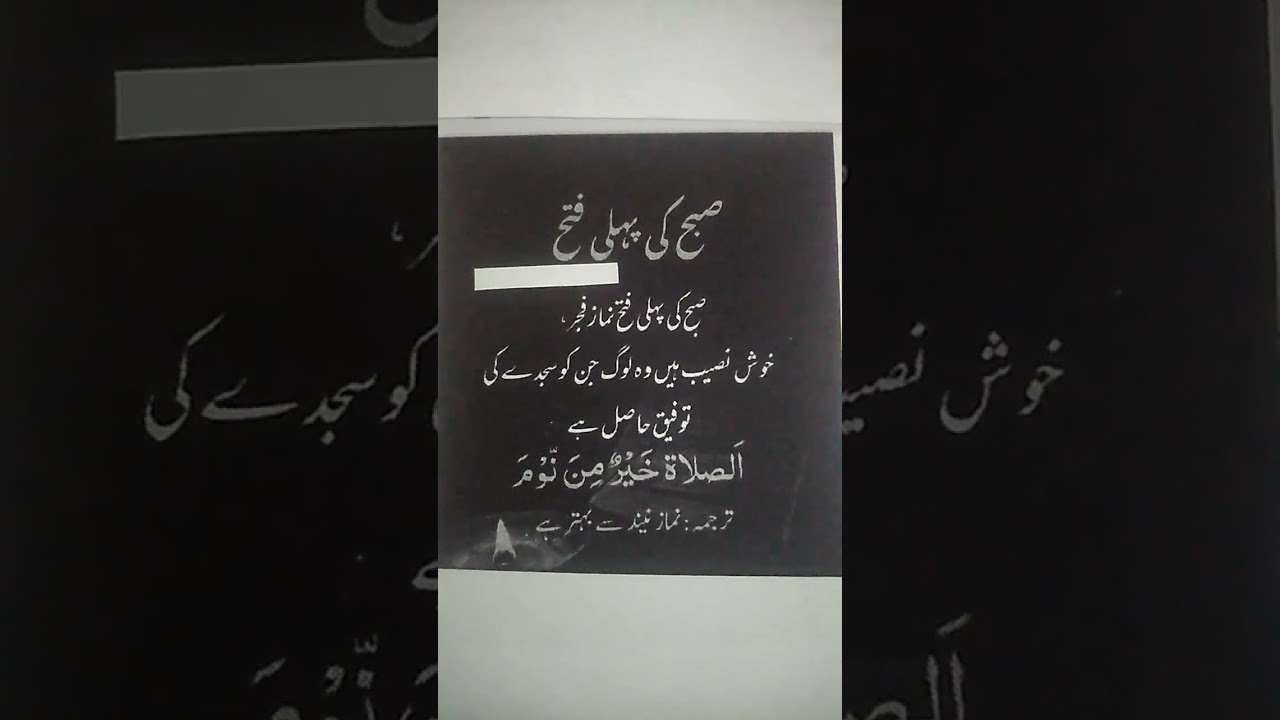 صبح کی پہلی فتح
صبح کی پہلی فتح نماز فجر،
خوش نصیب ہیں وہ لوگ جن کو سجدے کی
توفیق حاصل ہے
اَلصلاۃ خَیْرٌ مِنَ نَّوْمَ
ترجمہ: نماز نیند سے بہتر ہے